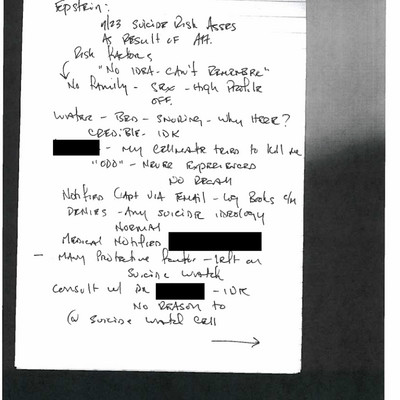 Epstein:
7/23 Suicide Risk Asses
As Result of Att.
Risk Factors
"No IDEA - CAN'T REMEMBER"
No Family - SEX - High Profile
OFF.
WATER - BED - SNORING - WHY HERE?
CREDIBLE - IDK
- My cellmate tried to kill me
"ODD" - NEVER EXPERIENCED
NO RECALL
Notified Capt VIA EMAIL - Log Books
DENIES - Any SUICIDE IDEOLOGY
NORMAL
MEDICAL Notified
- MANY Protective Factor - left on
SUICIDE WATCH
Consult w/ DR - IDK
NO REASON to
@ SUICIDE WATCH CELL